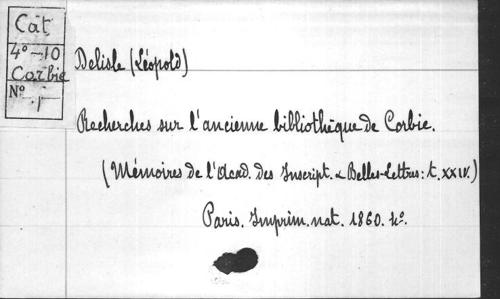 Cat
4º-10
Corbie
Nº 1
Delisle (Léopold)
Recherches sur l'ancienne bibliothèque de Corbie.
(Mémoires de l'Acad. des Inscript. & Belles-Lettres: t. XXIV.)
Paris. Imprim. nat. 1860. 4º.